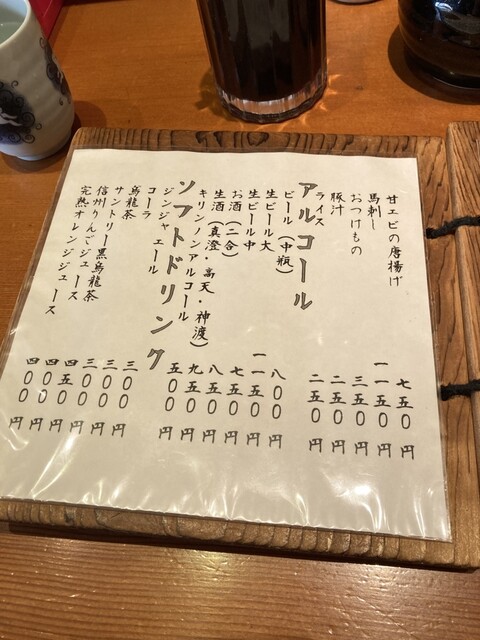 甘エビの唐揚げ 七五〇円
馬刺し 一一五〇円
おつけもの 三五〇円
豚汁 二五〇円
ライス 二五〇円
アルコール
ビール(中瓶) 八〇〇円
生ビール大 一一五〇円
生ビール中 七五〇円
お酒(二合) 八五〇円
生酒(真澄・高天・神渡) 九五〇円
キリンノンアルコール 五〇〇円
ソフトドリンク
ジンジャエール 三〇〇円
コーラ 三〇〇円
烏龍茶 三〇〇円
サントリー黒烏龍茶 四五〇円
信州りんごジュース 四〇〇円
完熟オレンジジュース 四〇〇円